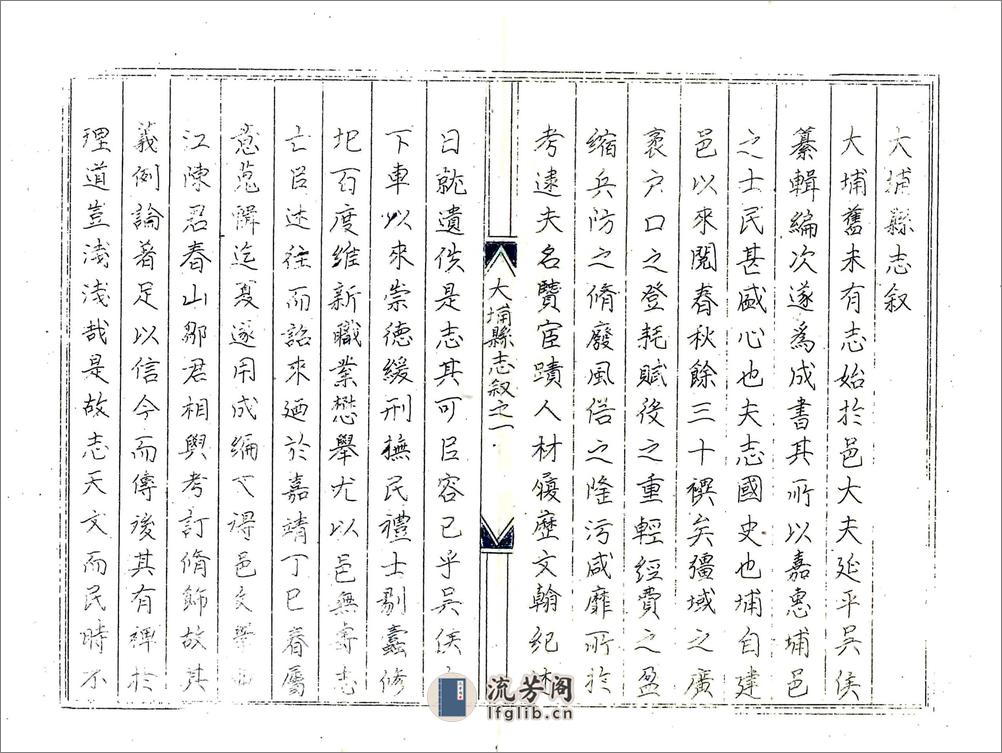 大埔縣志叙
大埔舊未有志始於邑大夫延平吳侯
纂輯編次遂爲成書其所以嘉惠埔邑
之士民甚盛心也夫志國史也埔自建
邑以來閱春秋餘三十禩矣疆域之廣
袤户口之登耗賦役之重輕經費之盈
縮兵防之脩廢風俗之隆污咸靡所於
考逮夫名賢宦蹟人材履歷文翰紀
大埔縣志叙之一
日就遺佚是志其可㠯容已乎吳侯
下車以來崇德緩刑撫民禮士剔蠹修
圯百度維新職業懋舉尤以邑無專志
亡㠯述往而詔來廼於嘉靖丁巳春屬
意蒐輯迄夏遂用成編又得邑文學
江陳君春山鄒君相與考訂脩飾故其
義例論著足以信今而傳後其有裨於
理道豈淺淺哉是故志天文而民時不
流芳阁
lfglib.cn